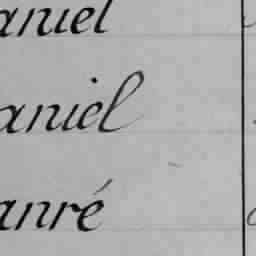 aniel
aniel
anré